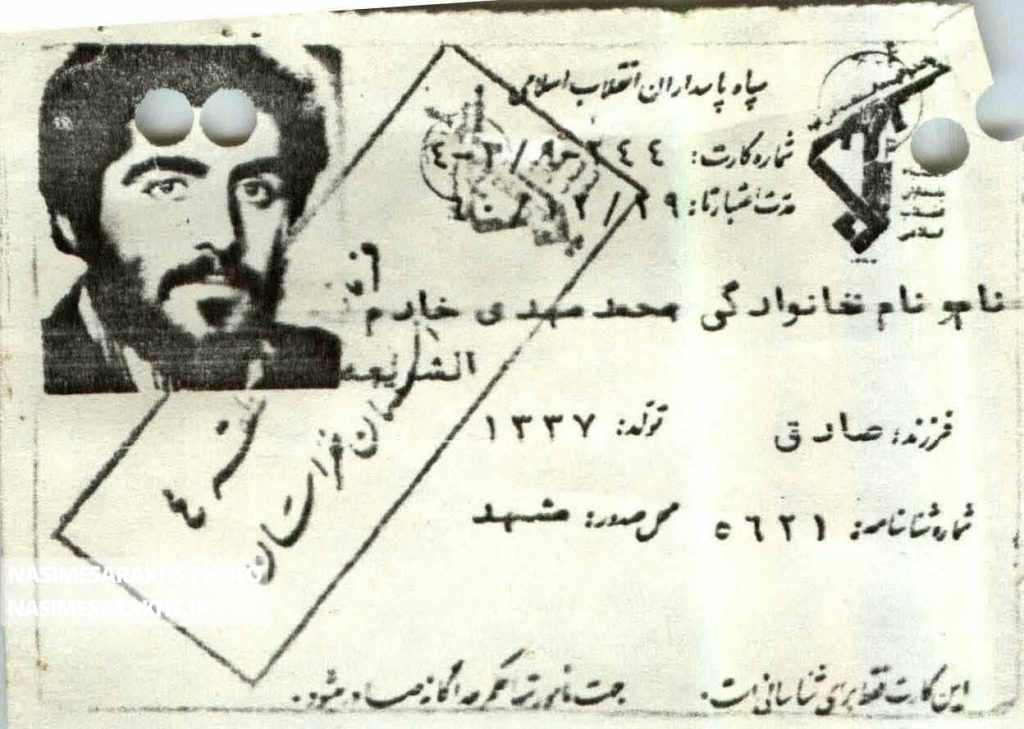 سپاه پاسداران انقلاب اسلامی
شماره کارت:
مدت اعتبار تا:
نام و نام خانوادگی محمد مهدی خادم
الشریعه
فرزند: صادق تولد: ۱۳۳۷
شماره شناسنامه: ۵۶۲۱ محل صدور: مشهد
خراستان
این کارت فقط برای شناسائی است. جهت مأموریتها حکم جداگانه صادر میشود.
NASIMESARAKHS PHOTO
NASIMESARAKHS.IR